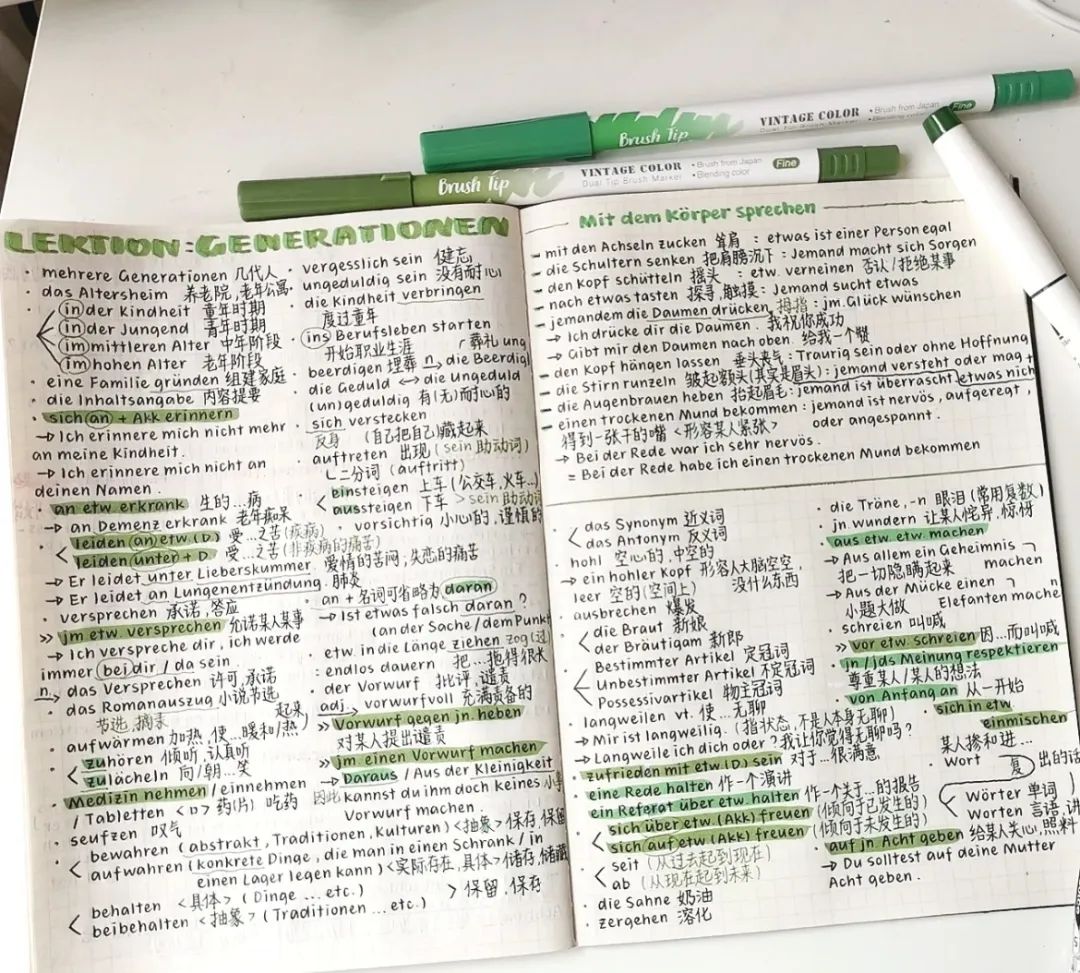 Brush Tip
VINTAGE COLOR
Dual Tip Brush Marker
• Brush from Japan
• Blending color
Fine
Brush Tip
VINTAGE COLOR
Dual Tip Brush Marker
• Brush from Japan
• Blending color
Fine
LEKTION: GENERATIONEN
· mehrere Generationen 几代人
· das Altersheim 养老院,老年公寓
in der Kindheit 童年时期
in der Jungend 青年时期
im mittleren Alter 中年阶段
im hohen Alter 老年阶段
· eine Familie gründen 组建家庭
· die Inhaltsangabe 内容提要
· sich an + Akk erinnern
→ Ich erinnere mich nicht mehr
an meine Kindheit.
→ Ich erinnere mich nicht an
deinen Namen.
· an etw erkrank 生的...病
→ an Demenz erkrank 老年痴呆
< leiden an etw (D) 受...之苦(疾病)
leiden unter + D 受...之苦(非疾病的痛苦)
→ Er leidet unter Lieberskummer. 爱情的苦闷,失恋的痛苦
→ Er leidet an Lungenentzündung. 肺炎
· versprechen 承诺,答应
>> jm etw. versprechen 允诺某人某事
→ Ich verspreche dir, ich werde
immer bei dir / da sein
n. das Versprechen 许可,承诺
· das Romanauszug 小说节选
节选,摘来
· aufwärmen 加热,使...暖和/热起来
< zuhören 倾听,认真听
zulächeln 向/朝...笑
· Medizin nehmen / einnehmen
/ Tabletten <口> 药(片) 吃药
· seufzen 叹气
< bewahren (abstrakt, Traditionen, Kulturen) <抽象> 保存,保留
aufwahren (konkrete Dinge, die man in einen Schrank / in
einen Lager legen kann) <实际存在,具体> 储存,储藏
< behalten <具体> (Dinge ... etc.)
beibehalten <抽象> (Traditionen ... etc.) > 保留,保存
· vergesslich sein 健忘
· ungeduldig sein 没有耐心
· die Kindheit verbringen
度过童年
· ins Berufsleben starten
开始职业生涯
· beerdigen 埋葬 n. → die Beerdigung 葬礼
· die Geduld ↔ die Ungeduld
(un)geduldig 有(无)耐心的
· sich verstecken
反身 (自己把自己)藏起来
· auftreten 出现 (sein 助动词)
二分词 (auftritt)
< einsteigen 上车 (公交车,火车...)
aussteigen 下车 > sein 助动词
· vorsichtig 小心的,谨慎的
· an + 名词可省略为 daran
→ Ist etwas falsch daran?
(an der Sache / dem Punkt
· etw. in die Länge ziehen zog (过)
: endlos dauern 把...拖得很长
· der Vorwurf 批评,谴责
adj. vorwurfvoll 充满责备的
>> Vorwurf gegen jn. heben
对某人提出谴责
>> jm einen Vorwurf machen
→ Daraus / Aus der Kleinigkeit
因此 kannst du ihm doch keines 小事
Vorwurf machen.
Mit dem Körper sprechen
– mit den Achseln zucken 耸肩 : etwas ist einer Person egal
– die Schultern senken 把肩膀沉下 : Jemand macht sich Sorgen
– den Kopf schütteln 摇头 : etw. verneinen 否认/拒绝某事
– nach etwas tasten 探寻,触摸 : Jemand sucht etwas
– jemandem die Daumen drücken 拇指 : jm. Glück wünschen
→ Ich drücke dir die Daumen. 我祝你成功
→ Gibt mir den Daumen nach oben. 给我一个赞
– den Kopf hängen lassen 垂头丧气 : Traurig sein oder ohne Hoffnung
– die Stirn runzeln 皱起额头(其实是眉头) : jemand versteht oder mag +
– die Augenbrauen heben 抬起眉毛 : jemand ist überrascht etwas nich
– einen trockenen Mund bekommen : jemand ist nervös, aufgeregt,
得到一张干的嘴 <形容某人紧张> oder angespannt.
→ Bei der Rede war ich sehr nervös.
= Bei der Rede habe ich einen trockenen Mund bekommen
< das Synonym 近义词
das Antonym 反义词
· hohl 空心的,中空的
→ ein hohler Kopf 形容人大脑空空,
没什么东西
· leer 空的(空间上)
· ausbrechen 爆发
< die Braut 新娘
der Bräutigam 新郎
Bestimmter Artikel 定冠词
< Unbestimmter Artikel 不定冠词
Possessivartikel 物主冠词
· langweilen vt. 使...无聊
→ Mir ist langweilig. (指状态,不是人本身无聊)
→ Langweile ich dich oder? 我让你觉得无聊吗?
· zufrieden mit etw.(D) sein 对于...很满意
· eine Rede halten 作一个演讲
ein Referat über etw. halten 作一个关于...的报告
< sich über etw.(Akk) freuen (倾向于已发生的)
sich auf etw (Akk) freuen (倾向于未发生的)
< seit (从过去起到现在)
ab (从现在起到未来)
· die Sahne 奶油
· zergehen 溶化
· die Träne, -n 眼泪 (常用复数)
· jn wundern 让某人诧异,惊讶
· aus etw. etw machen
→ Aus allem ein Geheimnis
把一切隐瞒起来 machen
→ Aus der Mücke einen
小题大做 Elefanten mache
· schreien 叫喊
>> vor etw. schreien 因...而叫喊
· jn / jds Meinung respektieren
尊重某人/某人的想法
· von Anfang an 从一开始
· sich in etw
einmischen
某人掺和进...
· Wort 复 出的话
Wörter 单词
Worten 言语,讲
· auf jn. Acht geben 给某人关心,照料
→ Du solltest auf deine Mutter
Acht geben.